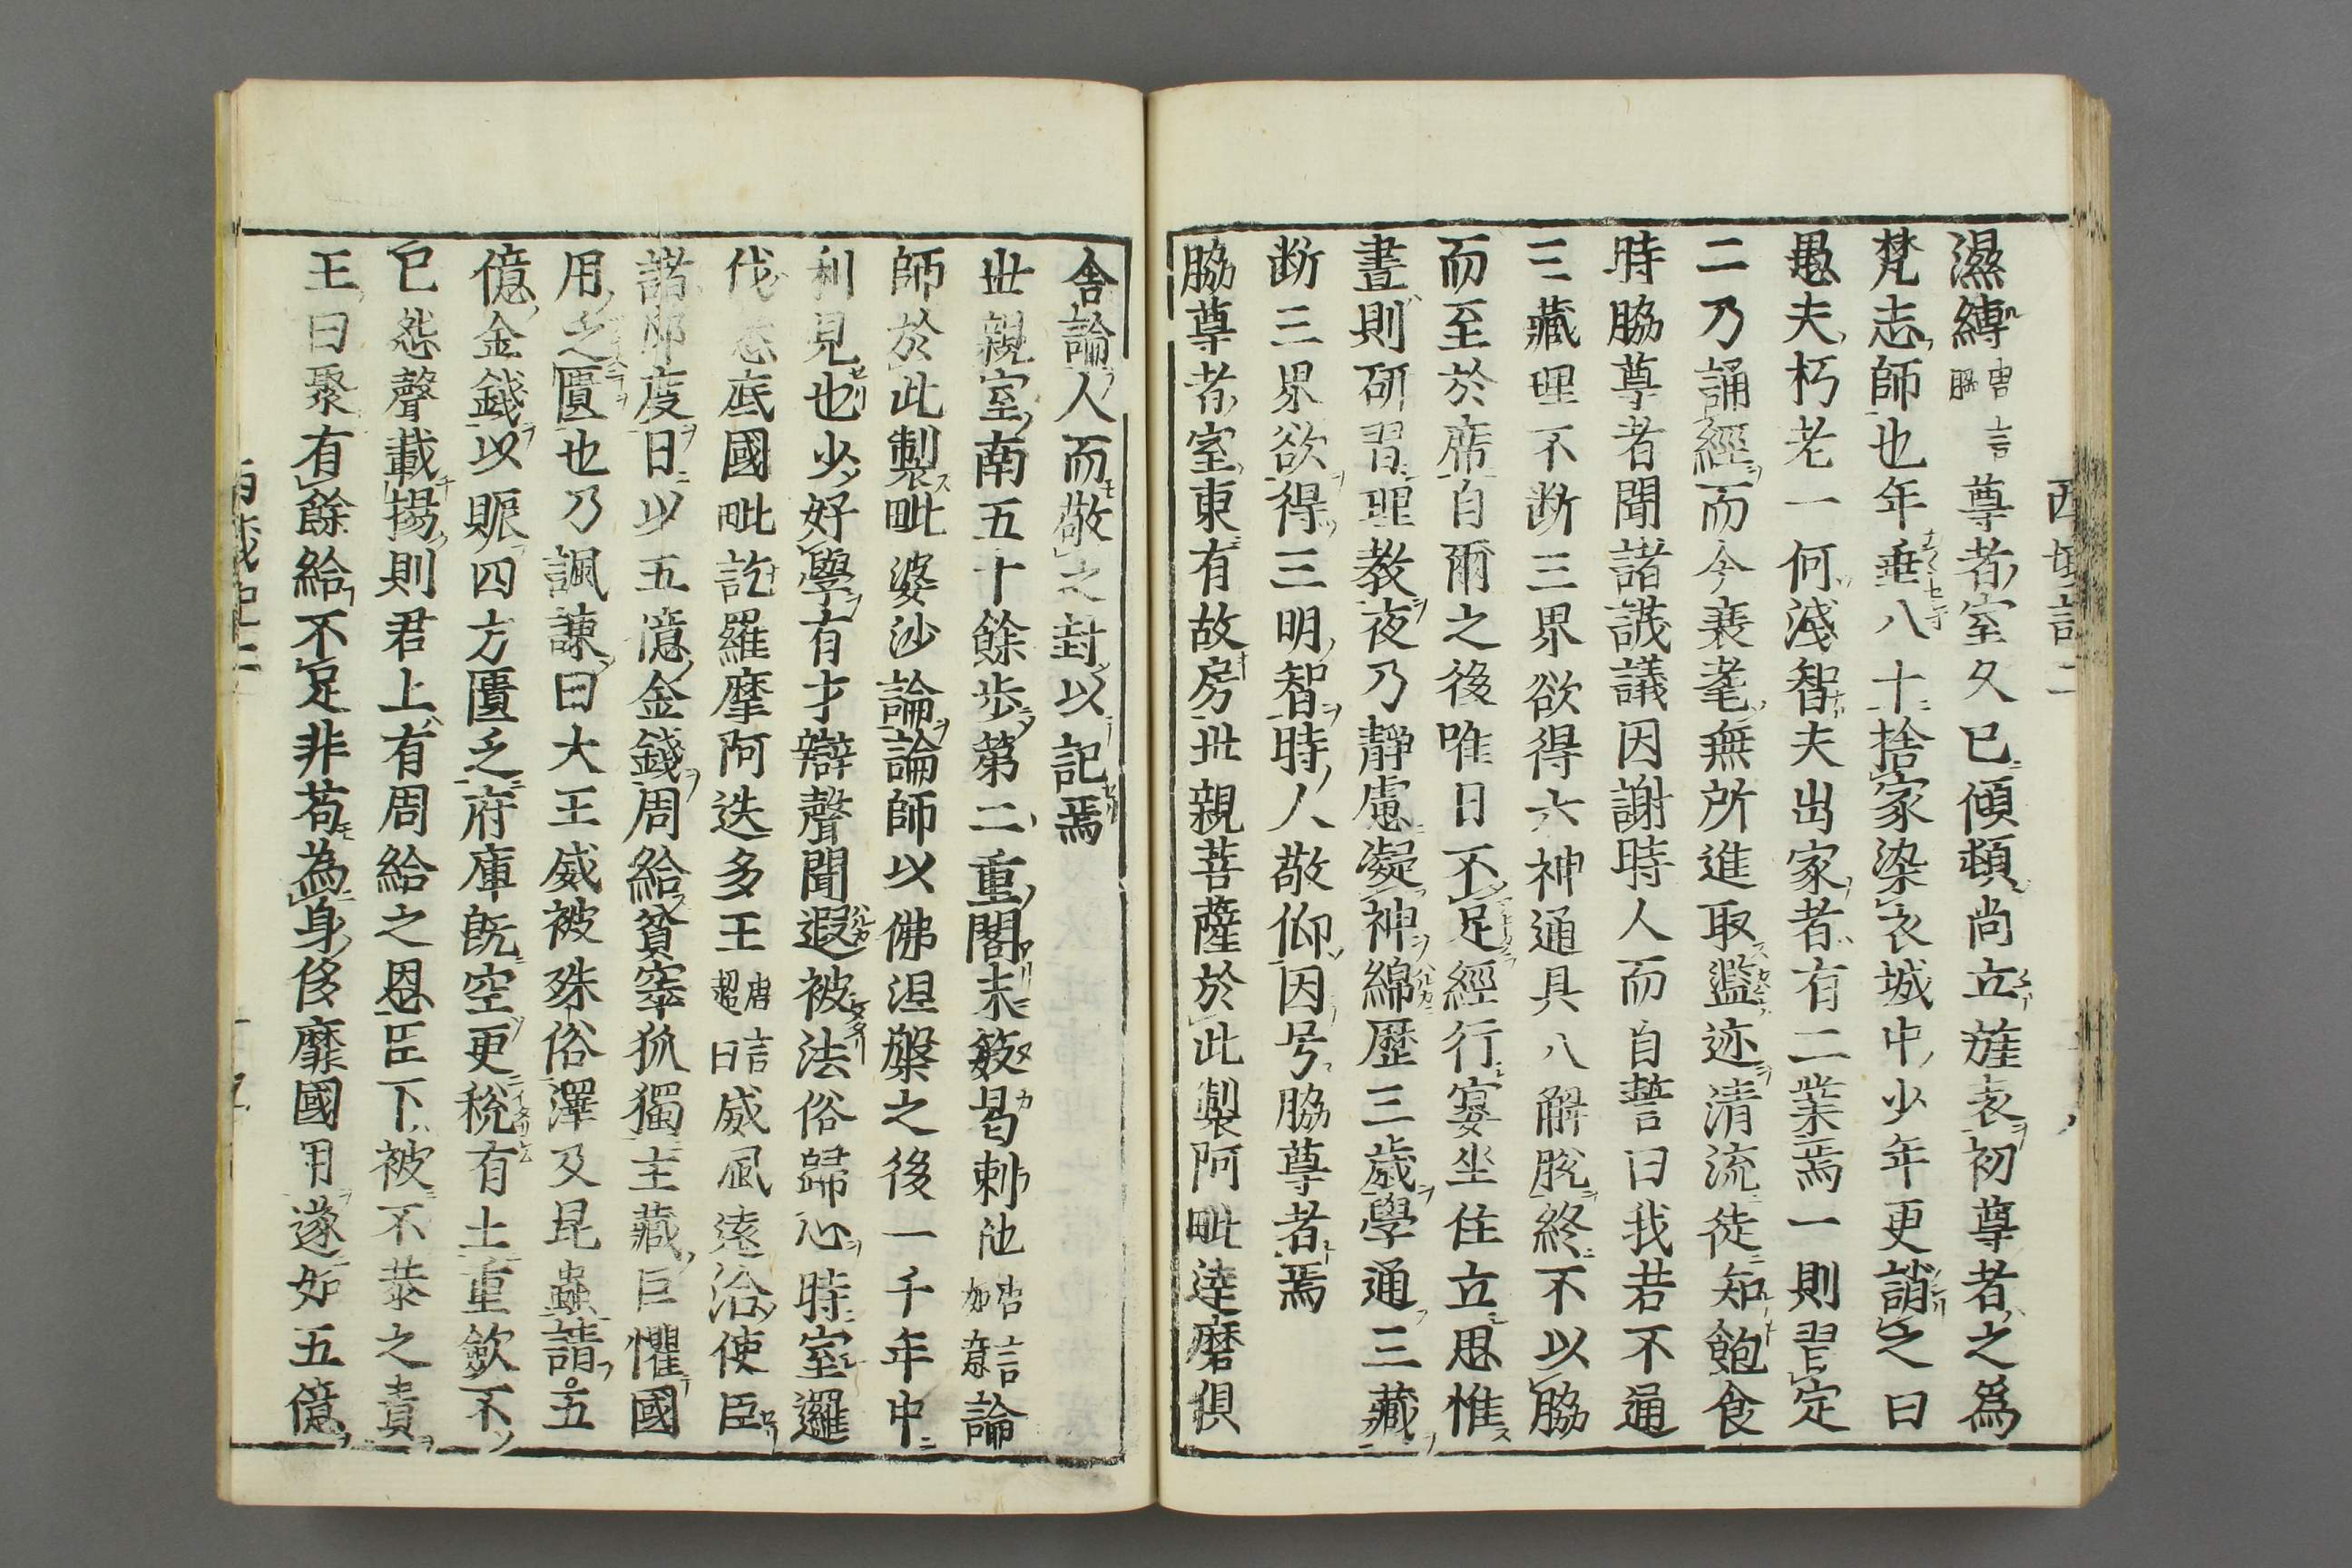 西域記二
濕縛唐言脇尊者室久已傾頓尚立旌表初尊者之爲
梵志師也年垂八十捨家染衣城中少年更誚之曰
愚夫朽老一何淺智夫出家者有二業焉一則習定
二乃誦經而今衰耄無所進取濫迹清流徒知飽食
時脇尊者聞諸譏議因謝時人而自誓曰我若不通
三藏理不断三界欲得六神通具八解脫終不以脇
而至於席自爾之後唯日不足經行宴坐住立思惟
晝則研習理教夜乃靜慮凝神綿歷三歲學通三藏
断三界欲得三明智時人敬仰因号脇尊者焉
脇尊者室東有故房世親菩薩於此製阿毗達磨俱
舎論人而敬之封以記焉
世親室南五十餘步第二重閣末笯曷剌他唐言如意論
師於此製毗婆沙論論師以佛涅槃之後一千年中
利見也少好學有才辯聲聞遐被法俗歸心時室邏
伐悉底國毗訖羅摩阿迭多王唐言超日威風遠洽使臣
諸印度日以五億金錢周給貧窭孤獨主藏臣懼國
用之匱也乃諷諫曰大王威被殊俗澤及昆蟲請五
億金錢以賑四方匱乏府庫既空更稅有土重歛不
已怨聲載揚則君上有周給之恩臣下被不恭之責
王曰聚有餘給不足非苟為身侈靡國用遂如五億
西域記二